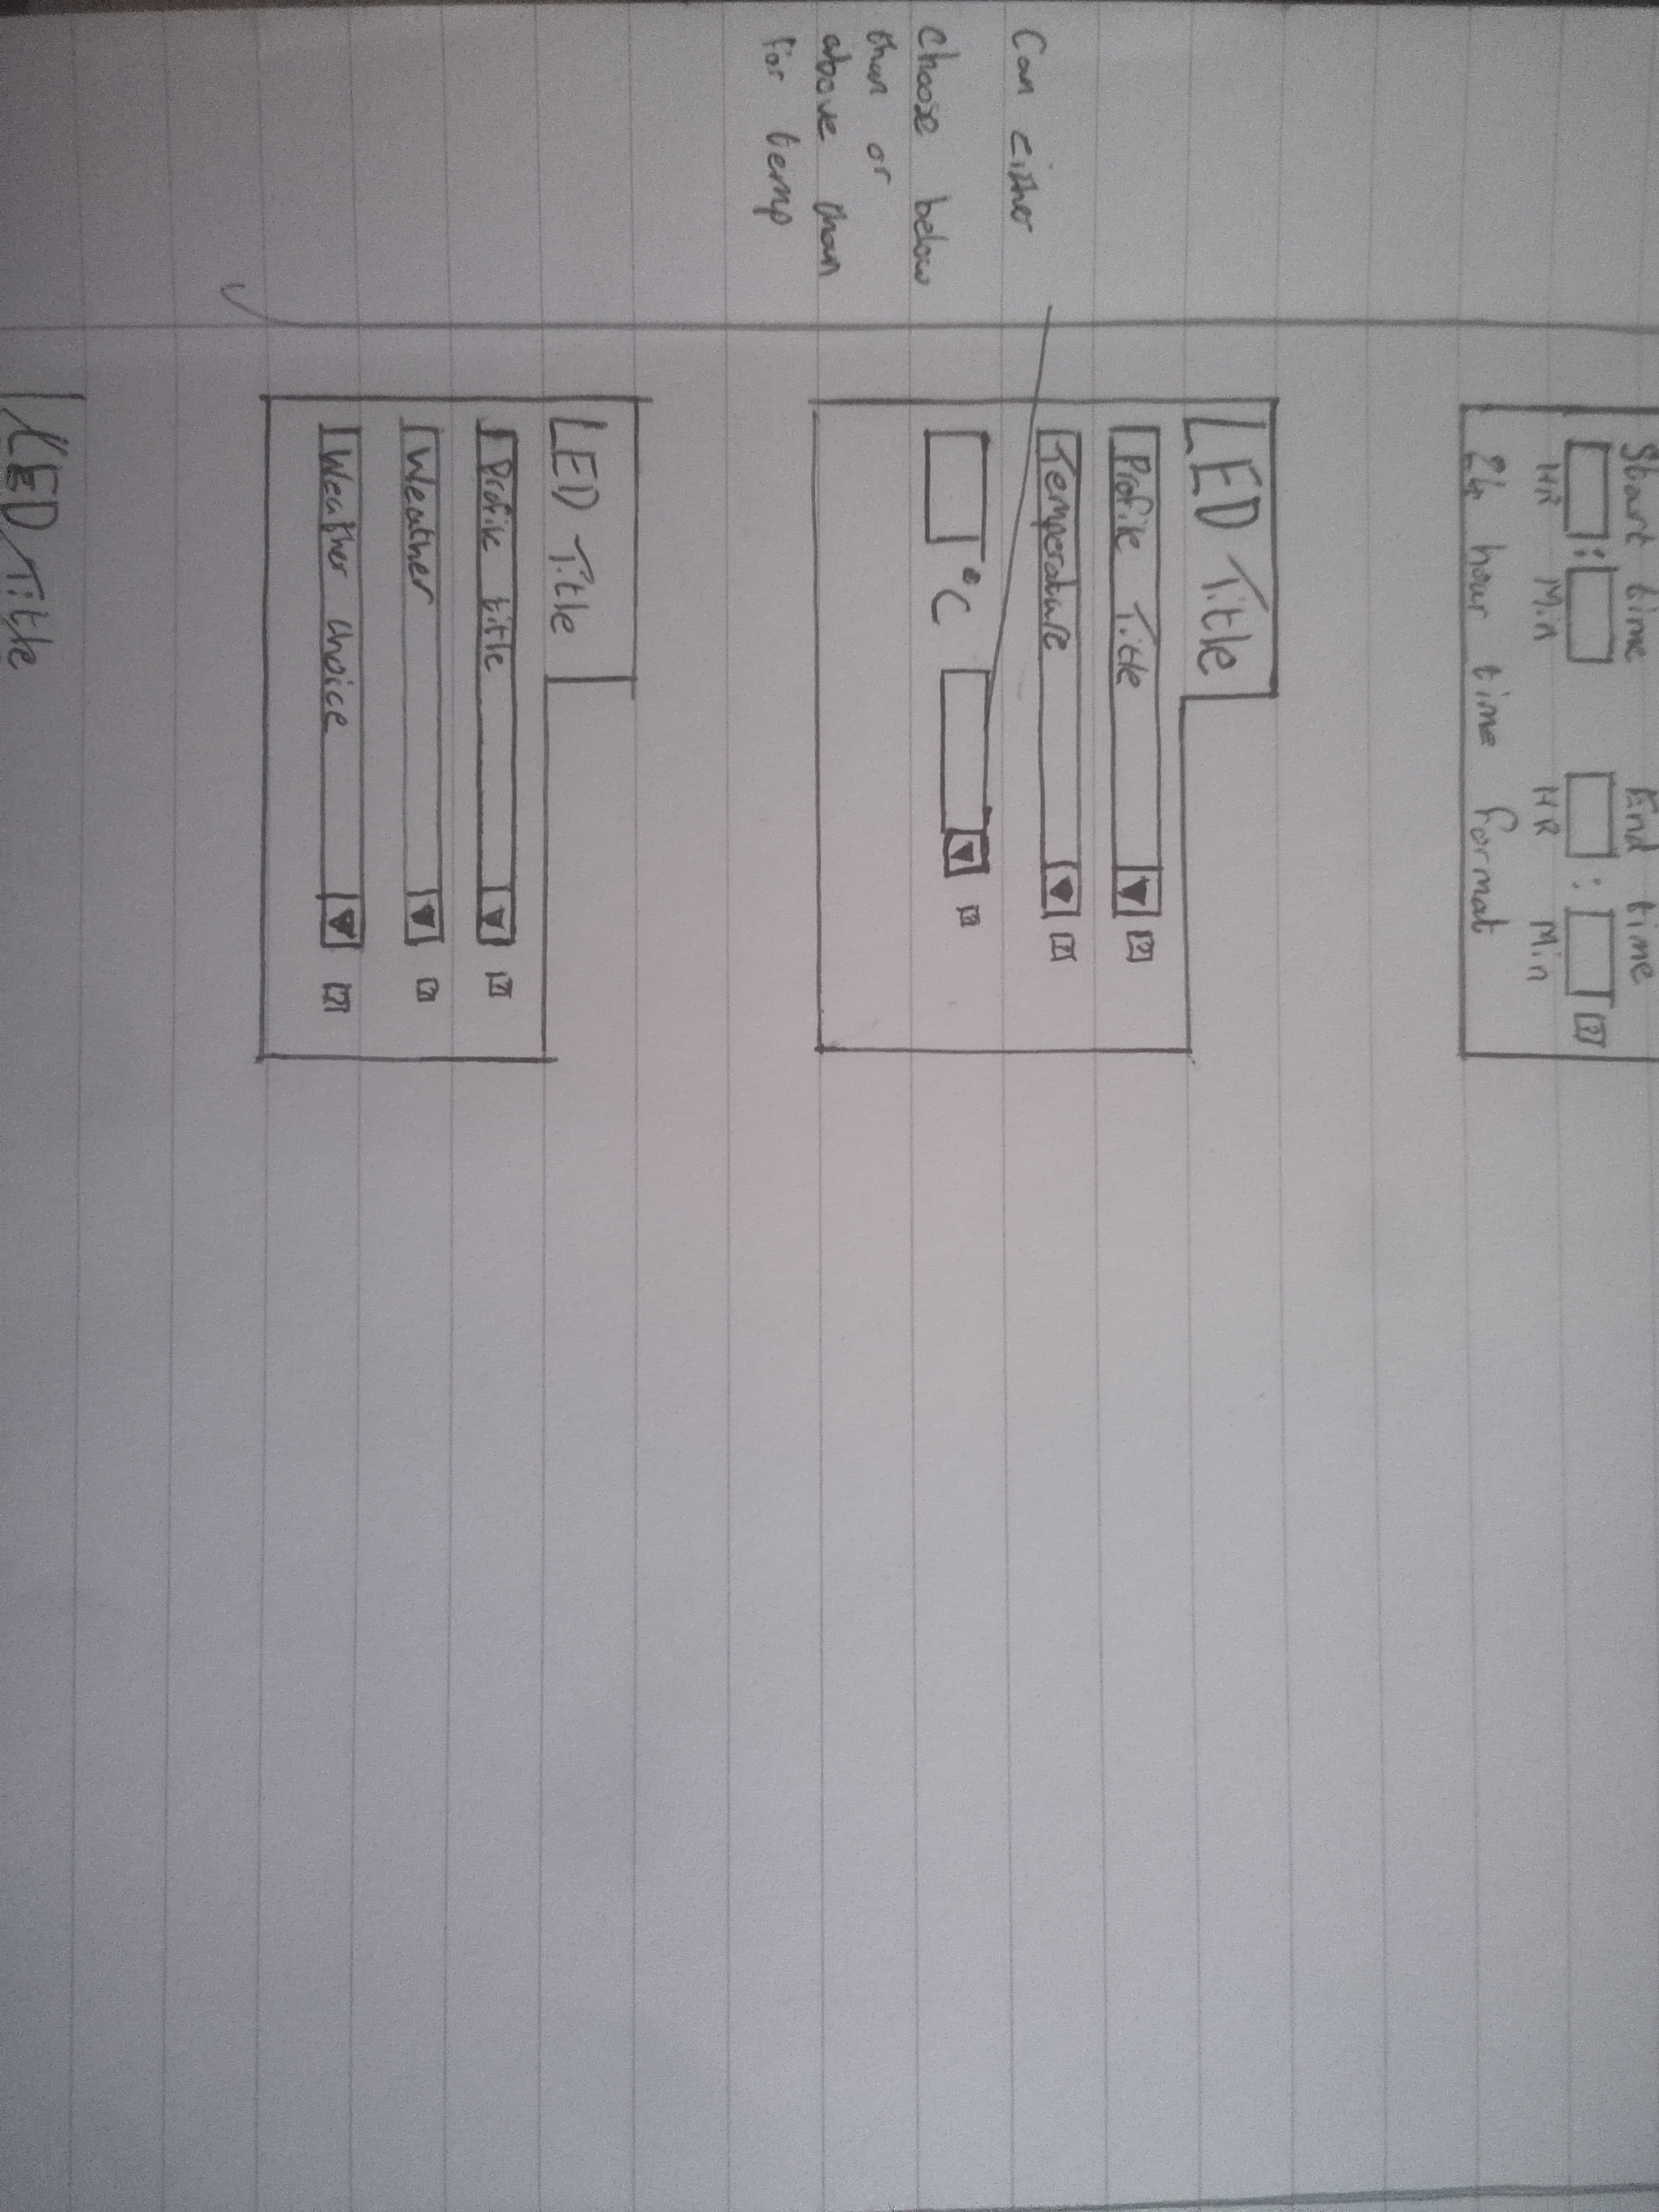 Start time End time
: : ?
HR Min HR Min
24 hour time format
LED Title
Profile Title ?
Temperature ?
°C ?
Can either
Choose below
than or
above than
for temp
LED Title
Profile title ?
Weather ?
Weather choice ?
LED Title